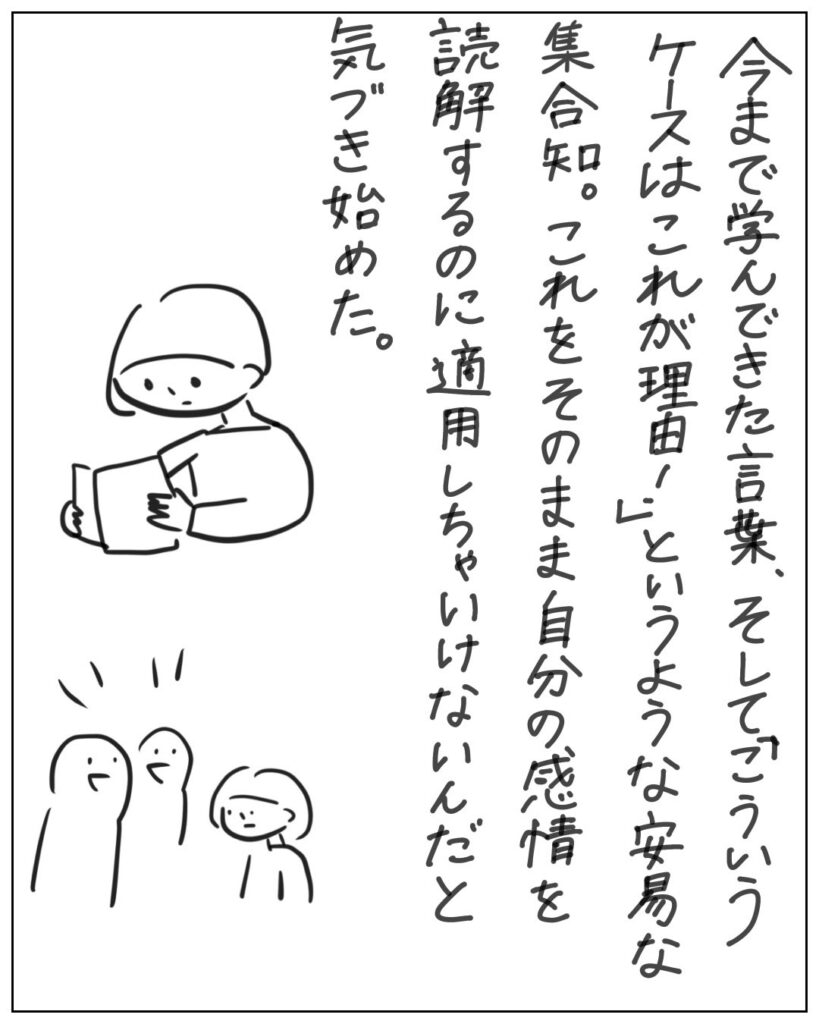 今まで学んできた言葉、そして「こういう
ケースはこれが理由!」というような安易な
集合知。これをそのまま自分の感情を
読解するのに適用しちゃいけないんだと
気づき始めた。